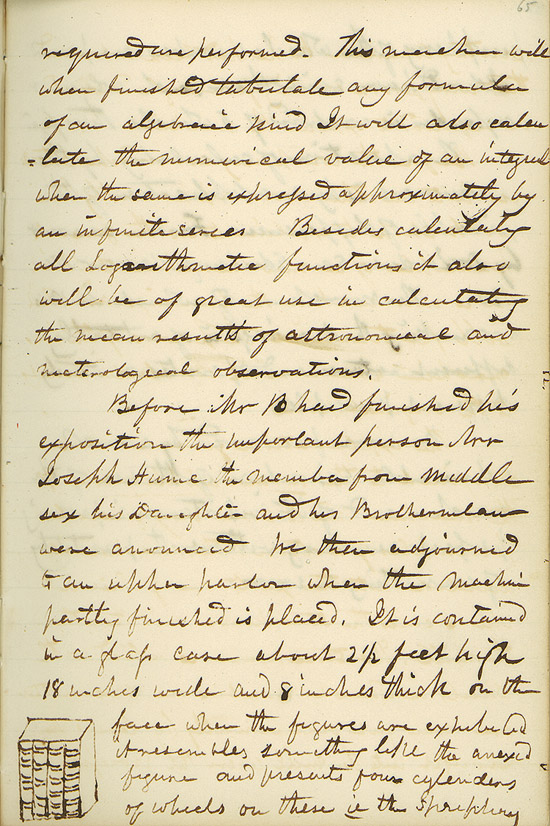 65
required are performed. This machen will
when finished tabulate any formula
of an algebraic kind It will also calcu
=late the numerical value of an integral
when the same is expressed approximately by
an infinite series Besides calculatng
all Logarithmetic functions it also
will be of great use in calculating
the mean results of astronomical and
meterological observations.
Before Mr B had finished his
exposition the important person
Joseph Hume the member from Middle
sex his Daughter and his Brotherinlaw
were anounced We then adjourned
to an upper parlor when the Machin
partly finished is placed. It is contained
in a glass case about 2½ feet high
18 inches wide and 8 inches thick on the
face when the figures are exhibited
it resembles something like the anexed
figure and presents four cylenders
of wheels on these is the